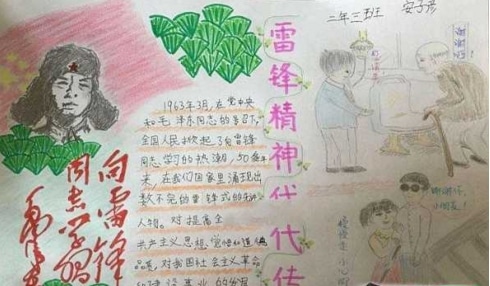 雷锋精神代代传
二年三班
谢谢你
1963年3月,在党中央
和毛泽东同志的号召下,
全国人民掀起了向雷锋
同志学习的热潮,50多年
来,在我们国家里涌现出
数不完的雷锋式的
人物。对提高全
共产主义思想、觉悟和道德
品质,对我国社会主义革命
和建设事业的发展
向雷锋
同志学习
毛泽东
谢谢你,
小朋友!
慢慢走,小心